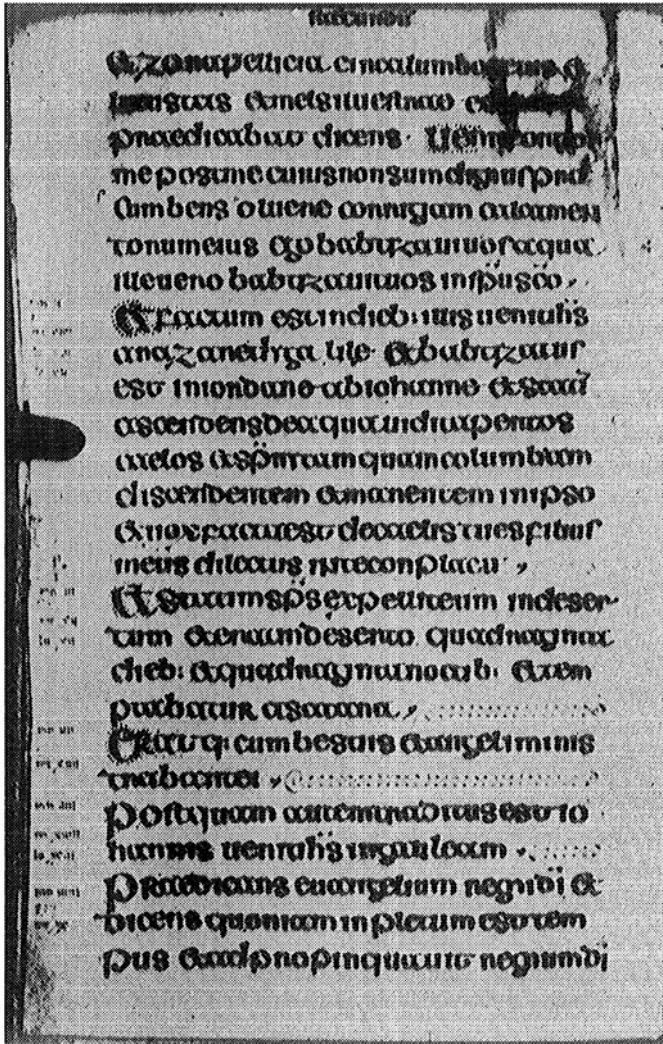 et zona pellicia circa lumbos eius et
lucustas et mel siluestrae
praedicabat dicens · Uenit fortior
me post me cuius non sum dignus pro
cumbens soluere corrigiam calciamen
torum eius ego babtizaui uos aqua
ille uero babtizauit uos in spu sco
Et factum est in dieb: illis uenit ihs
a nazareth galileae et babtizatus
est in iordane ab iohanne et stati
ascendens de aqua uidit apertos
caelos et spm tamquam columbam
discendentem et manentem in ipso
et uox facta est de caelis tu es filius
meus dilectus in te conplacui
Et statim sps expellit eum in deser
tum et erat in deserto quadraginta
dieb: et quadraginta noctib: et tem
ptabatur a satana
Erat q: cum bestiis et angeli minis
trabant ei
Postquam autem traditus est io
hannis uenit ihs in galileam
Praedicans euangelium regni di et
dicens quoniam inpletum est tem
pus et adpropinquauit regnum di